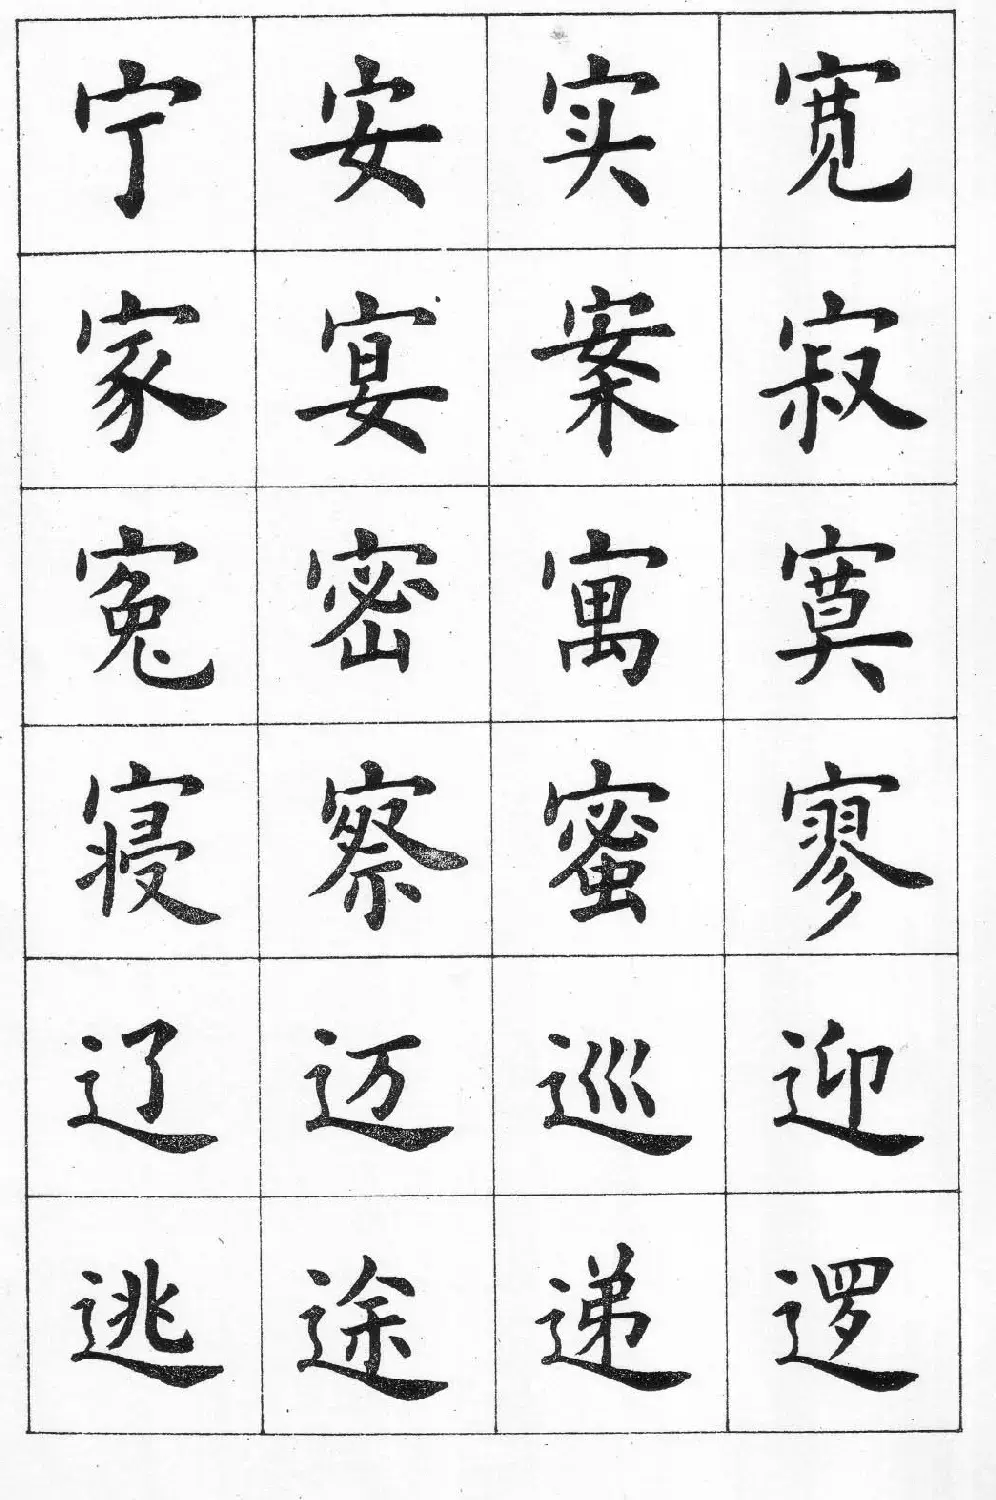 宁安实宽
家宴案寂
寃密寓寞
寝察蜜寥
辽迈巡迎
逃途递逻